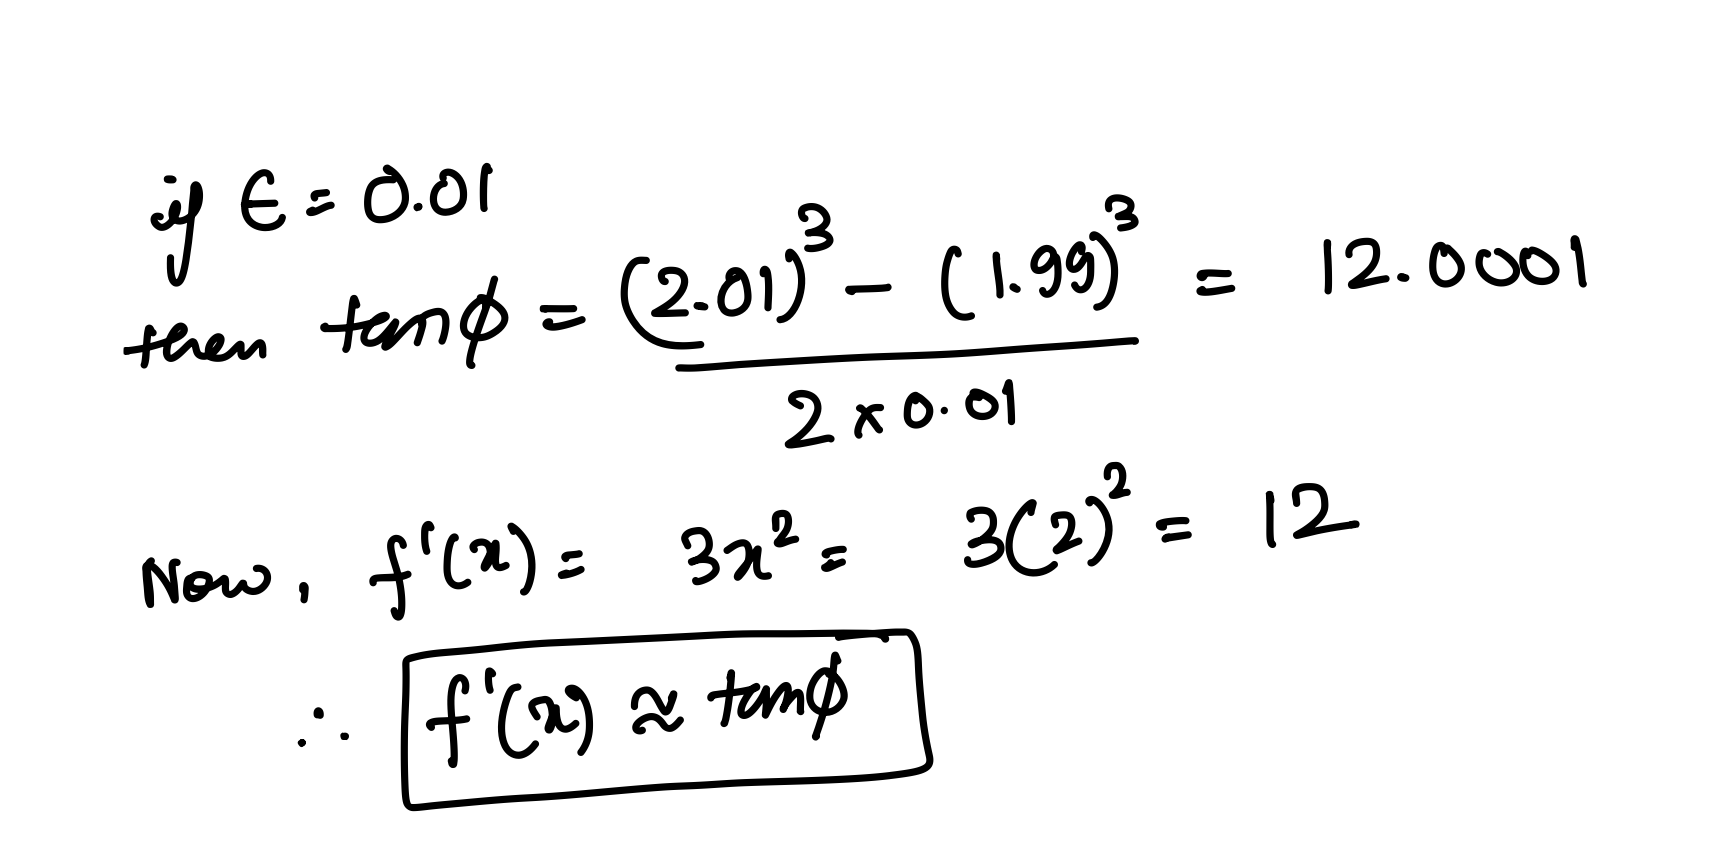 if ϵ = 0.01
then tanϕ = (2.01)³ - (1.99)³ = 12.0001
2 × 0.01
Now, f'(x) = 3x² = 3(2)² = 12
∴ f'(x) ≈ tanϕ